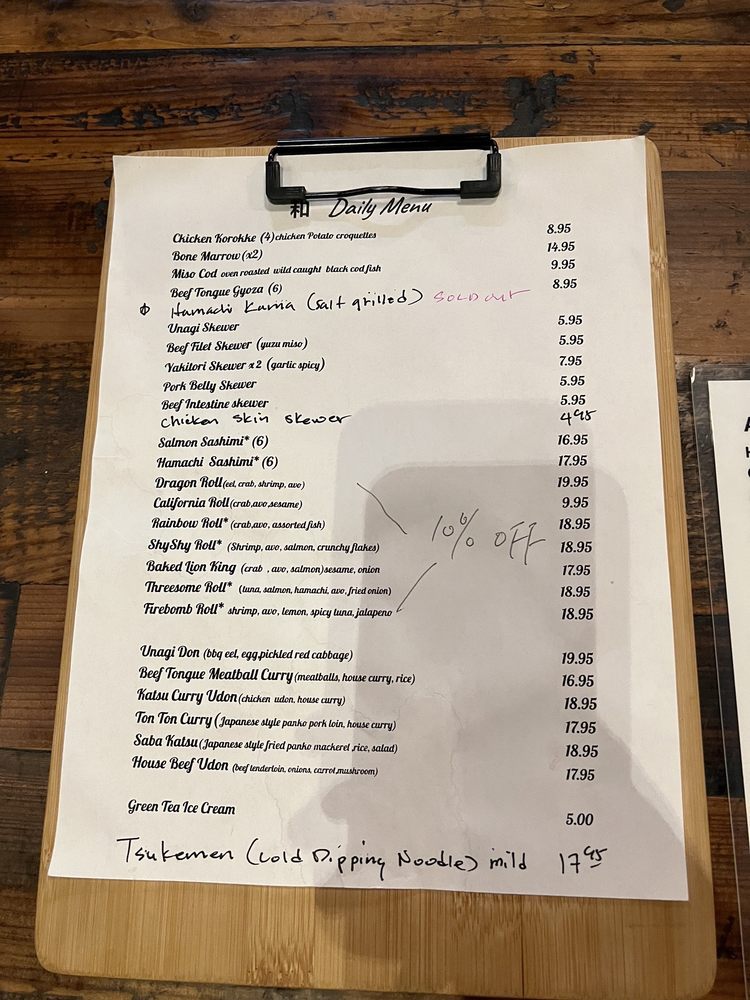 和 Daily Menu
Chicken Korokke (4) chicken Potato croquettes 8.95
Bone Marrow (x2) 14.95
Miso Cod oven roasted wild caught black cod fish 9.95
Beef Tongue Gyoza (6) 8.95
Hamachi Kama (salt grilled) SOLD OUT
Unagi Skewer 5.95
Beef Filet Skewer (yuzu miso) 5.95
Yakitori Skewer x 2 (garlic spicy) 7.95
Pork Belly Skewer 5.95
Beef Intestine skewer 5.95
chicken skin skewer 4.95
Salmon Sashimi* (6) 16.95
Hamachi Sashimi* (6) 17.95
Dragon Roll (eel, crab, shrimp, avo) 19.95
California Roll (crab,avo,sesame) 9.95
Rainbow Roll* (crab,avo, assorted fish) 18.95
10% OFF
ShyShy Roll* (Shrimp, avo, salmon, crunchy flakes) 18.95
Baked Lion King (crab , avo, salmon)sesame, onion 17.95
Threesome Roll* (tuna, salmon, hamachi, avo, fried onion) 18.95
Firebomb Roll* shrimp, avo, lemon, spicy tuna, jalapeno 18.95
Unagi Don (bbq eel, egg,pickled red cabbage) 19.95
Beef Tongue Meatball Curry (meatballs, house curry, rice) 16.95
Katsu Curry Udon (chicken udon, house curry) 18.95
Ton Ton Curry (Japanese style panko pork loin, house curry) 17.95
Saba Katsu (Japanese style fried panko mackerel ,rice, salad) 18.95
House Beef Udon (beef tenderloin, onions, carrot,mushroom) 17.95
Green Tea Ice Cream 5.00
Tsukemen (Cold Dipping Noodle) mild 17.95